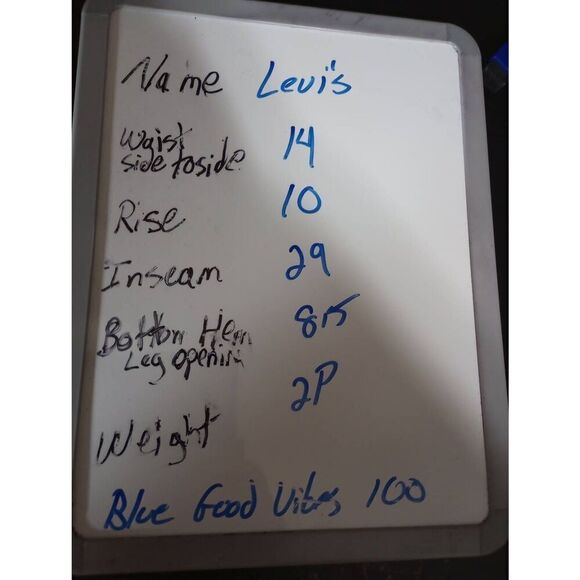 Name Levi's
Waist 14
side toside
Rise 10
Inseam 29
Bottom Hem 8.5
Leg openin
Weight 2P
Blue Good Vibes 100